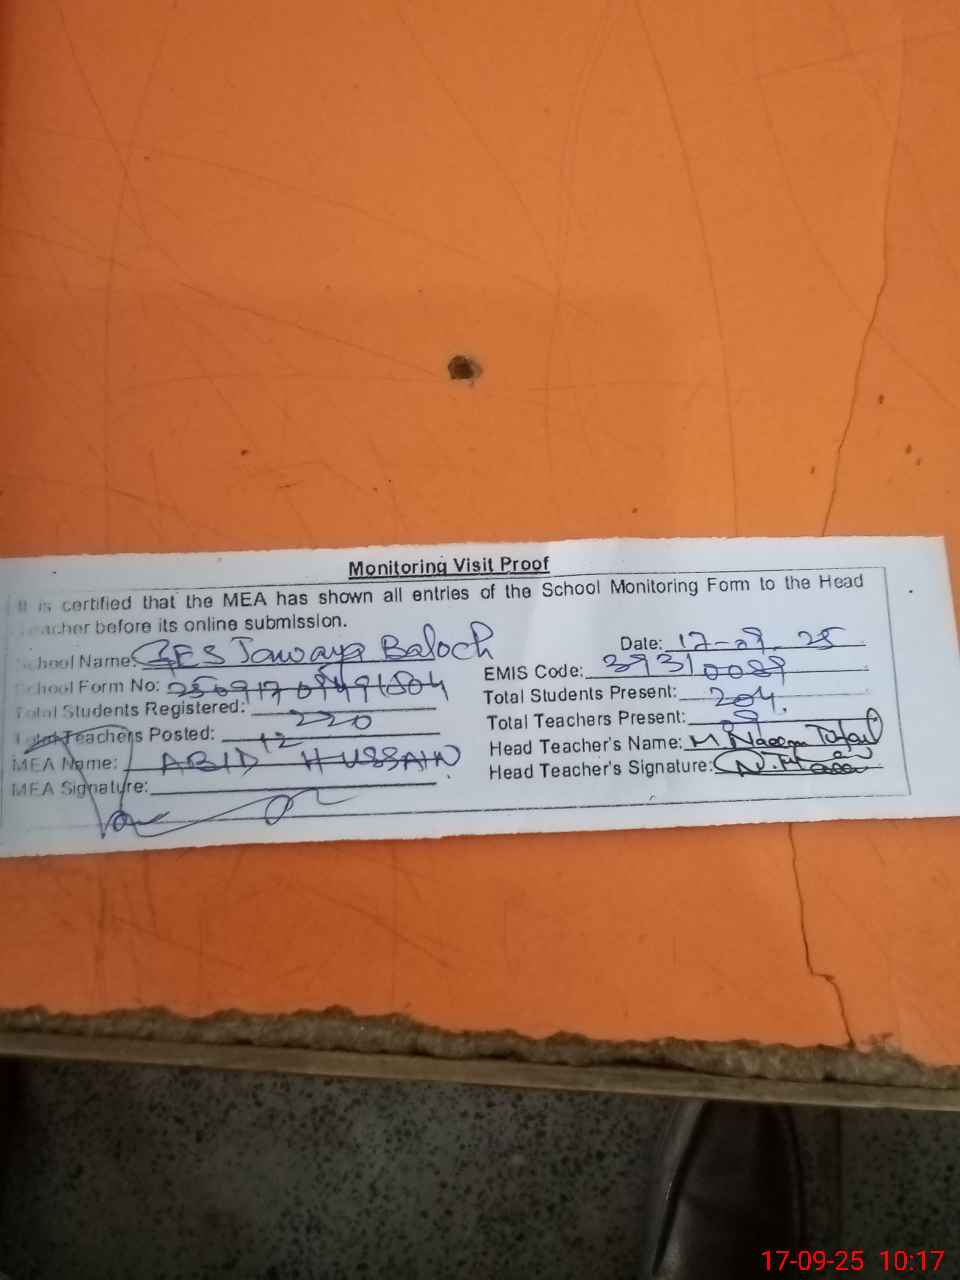 Monitoring Visit Proof
It is certified that the MEA has shown all entries of the School Monitoring Form to the Head
Teacher before its online submission.
School Name: GES Jawaya Baloch Date: 17-09-25
School Form No: EMIS Code: 39310089
Total Students Registered: 220 Total Students Present: 204
Total Teachers Posted: 12 Total Teachers Present: 09
MEA Name: ABID HUSSAIN Head Teacher's Name: M. Naeem Tufail
MEA Signature: Head Teacher's Signature:
17-09-25 10:17